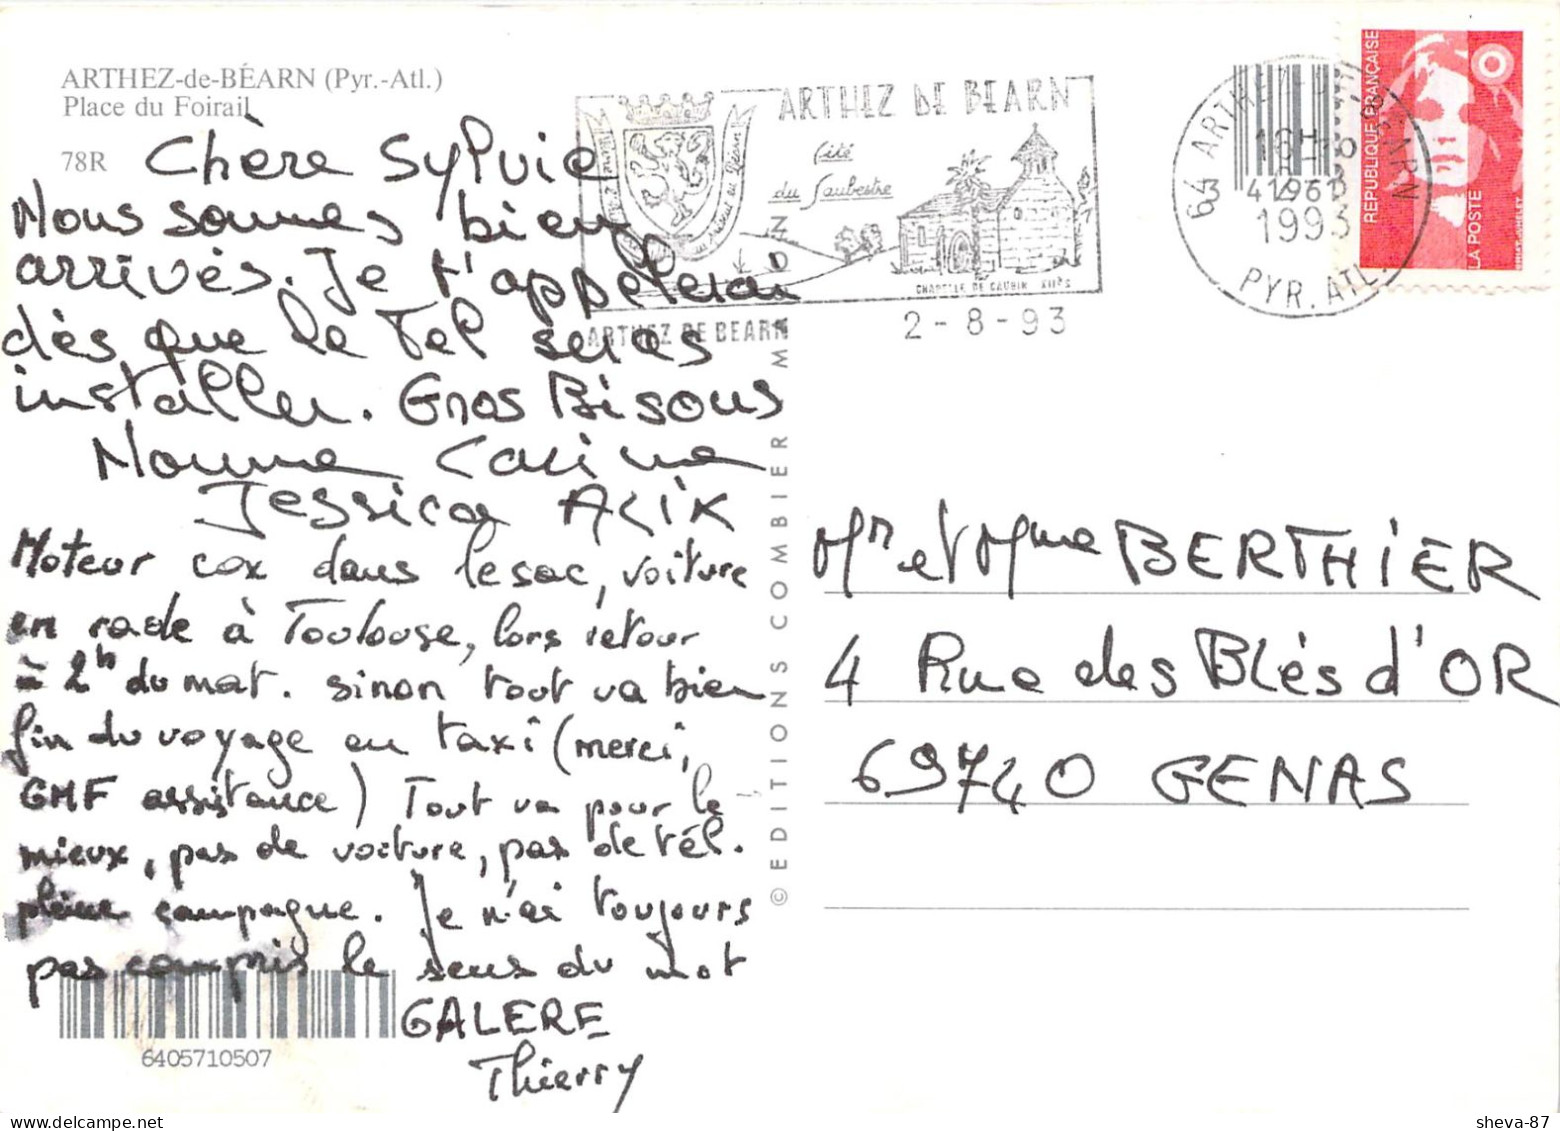 ARTHEZ-de-BÉARN (Pyr.-Atl.)
Place du Foirail
78R
Chère Sylvie
Nous sommes bien
arrivés. Je t'appelerai
dès que le Tel seras
installer. Gros Bisous
Carina
Jessica Alix
Moteur cox dans le sac, voiture
en rade à Toulouse, lors retour
à 2h du mat. sinon tout va bien
fin du voyage en taxi (merci,
GMF assistance) Tout va pour le
mieux, pas de voiture, pas de tél.
pleine campagne. Je n'ai toujours
pas compris le sens du mot
GALERE
Thierry
6405710507
© EDITIONS COMBIER MACON
ARTHEZ DE BEARN
Cité
du Saubestre
CHAPELLE DE CAUBIN XIIèS
ARTHEZ DE BEARN
2-8-93
64 ARTHEZ DE BEARN
18H
1993
PYR. ATL.
3 41961
REPUBLIQUE FRANÇAISE
LA POSTE
Mr et Mme BERTHIER
4 Rue des Blés d'OR
69740 GENAS
sheva-87